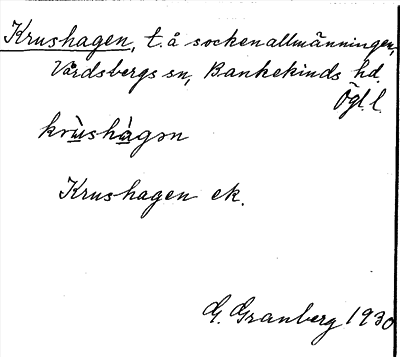 Krushagen, t. å sockenallmänningen,
Vårdsbergs sn, Bankekinds hd.
Ögl. l.
krùshàgən
Krushagen ek.
G. Granberg 1930